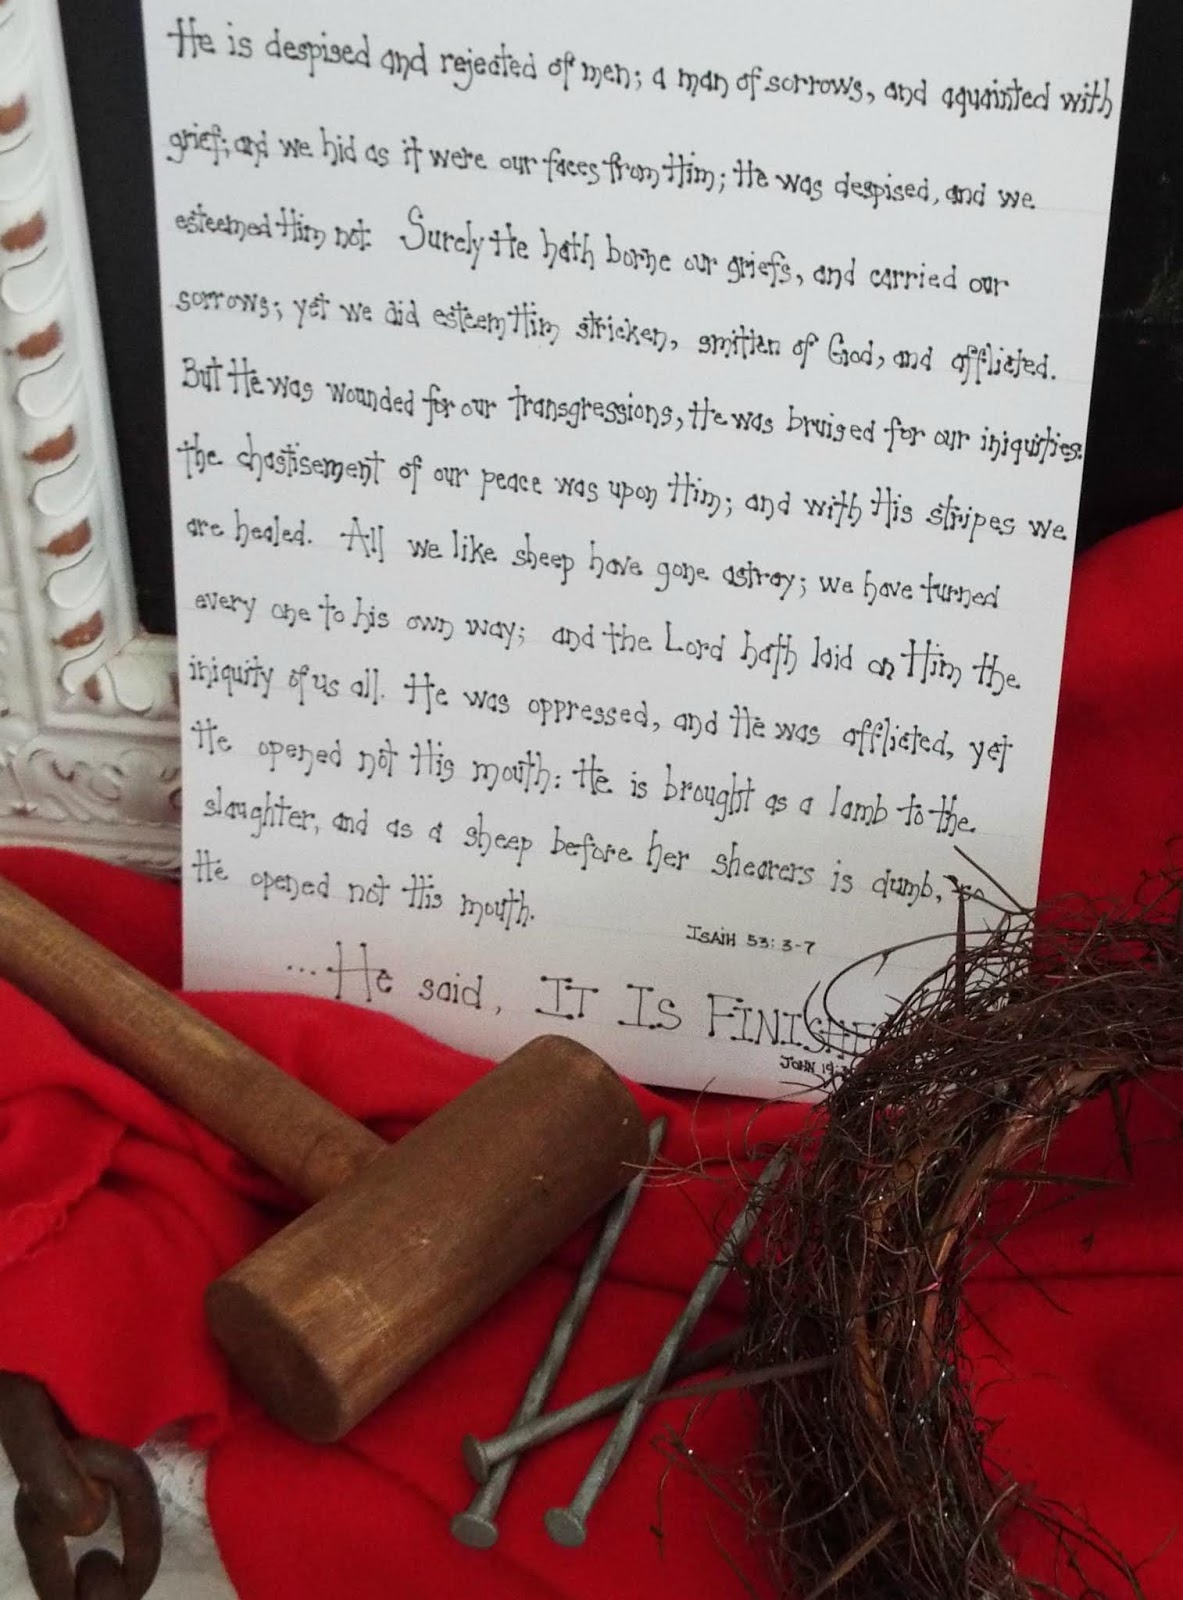 He is despised and rejected of men; a man of sorrows, and aquainted with
grief; and we hid as it were our faces from Him; He was despised, and we
esteemed Him not. Surely He hath borne our griefs, and carried our
sorrows; yet we did esteem Him stricken, smitten of God, and afflicted.
But He was wounded for our transgressions, He was bruised for our iniquities:
the chastisement of our peace was upon Him; and with His stripes we
are healed. All we like sheep have gone astray; we have turned
every one to his own way; and the Lord hath laid on Him the
iniquity of us all. He was oppressed, and He was afflicted, yet
He opened not His mouth: He is brought as a lamb to the
slaughter, and as a sheep before her shearers is dumb, so
He opened not His mouth.
ISAIH 53: 3-7
...He said, IT IS
JOHN